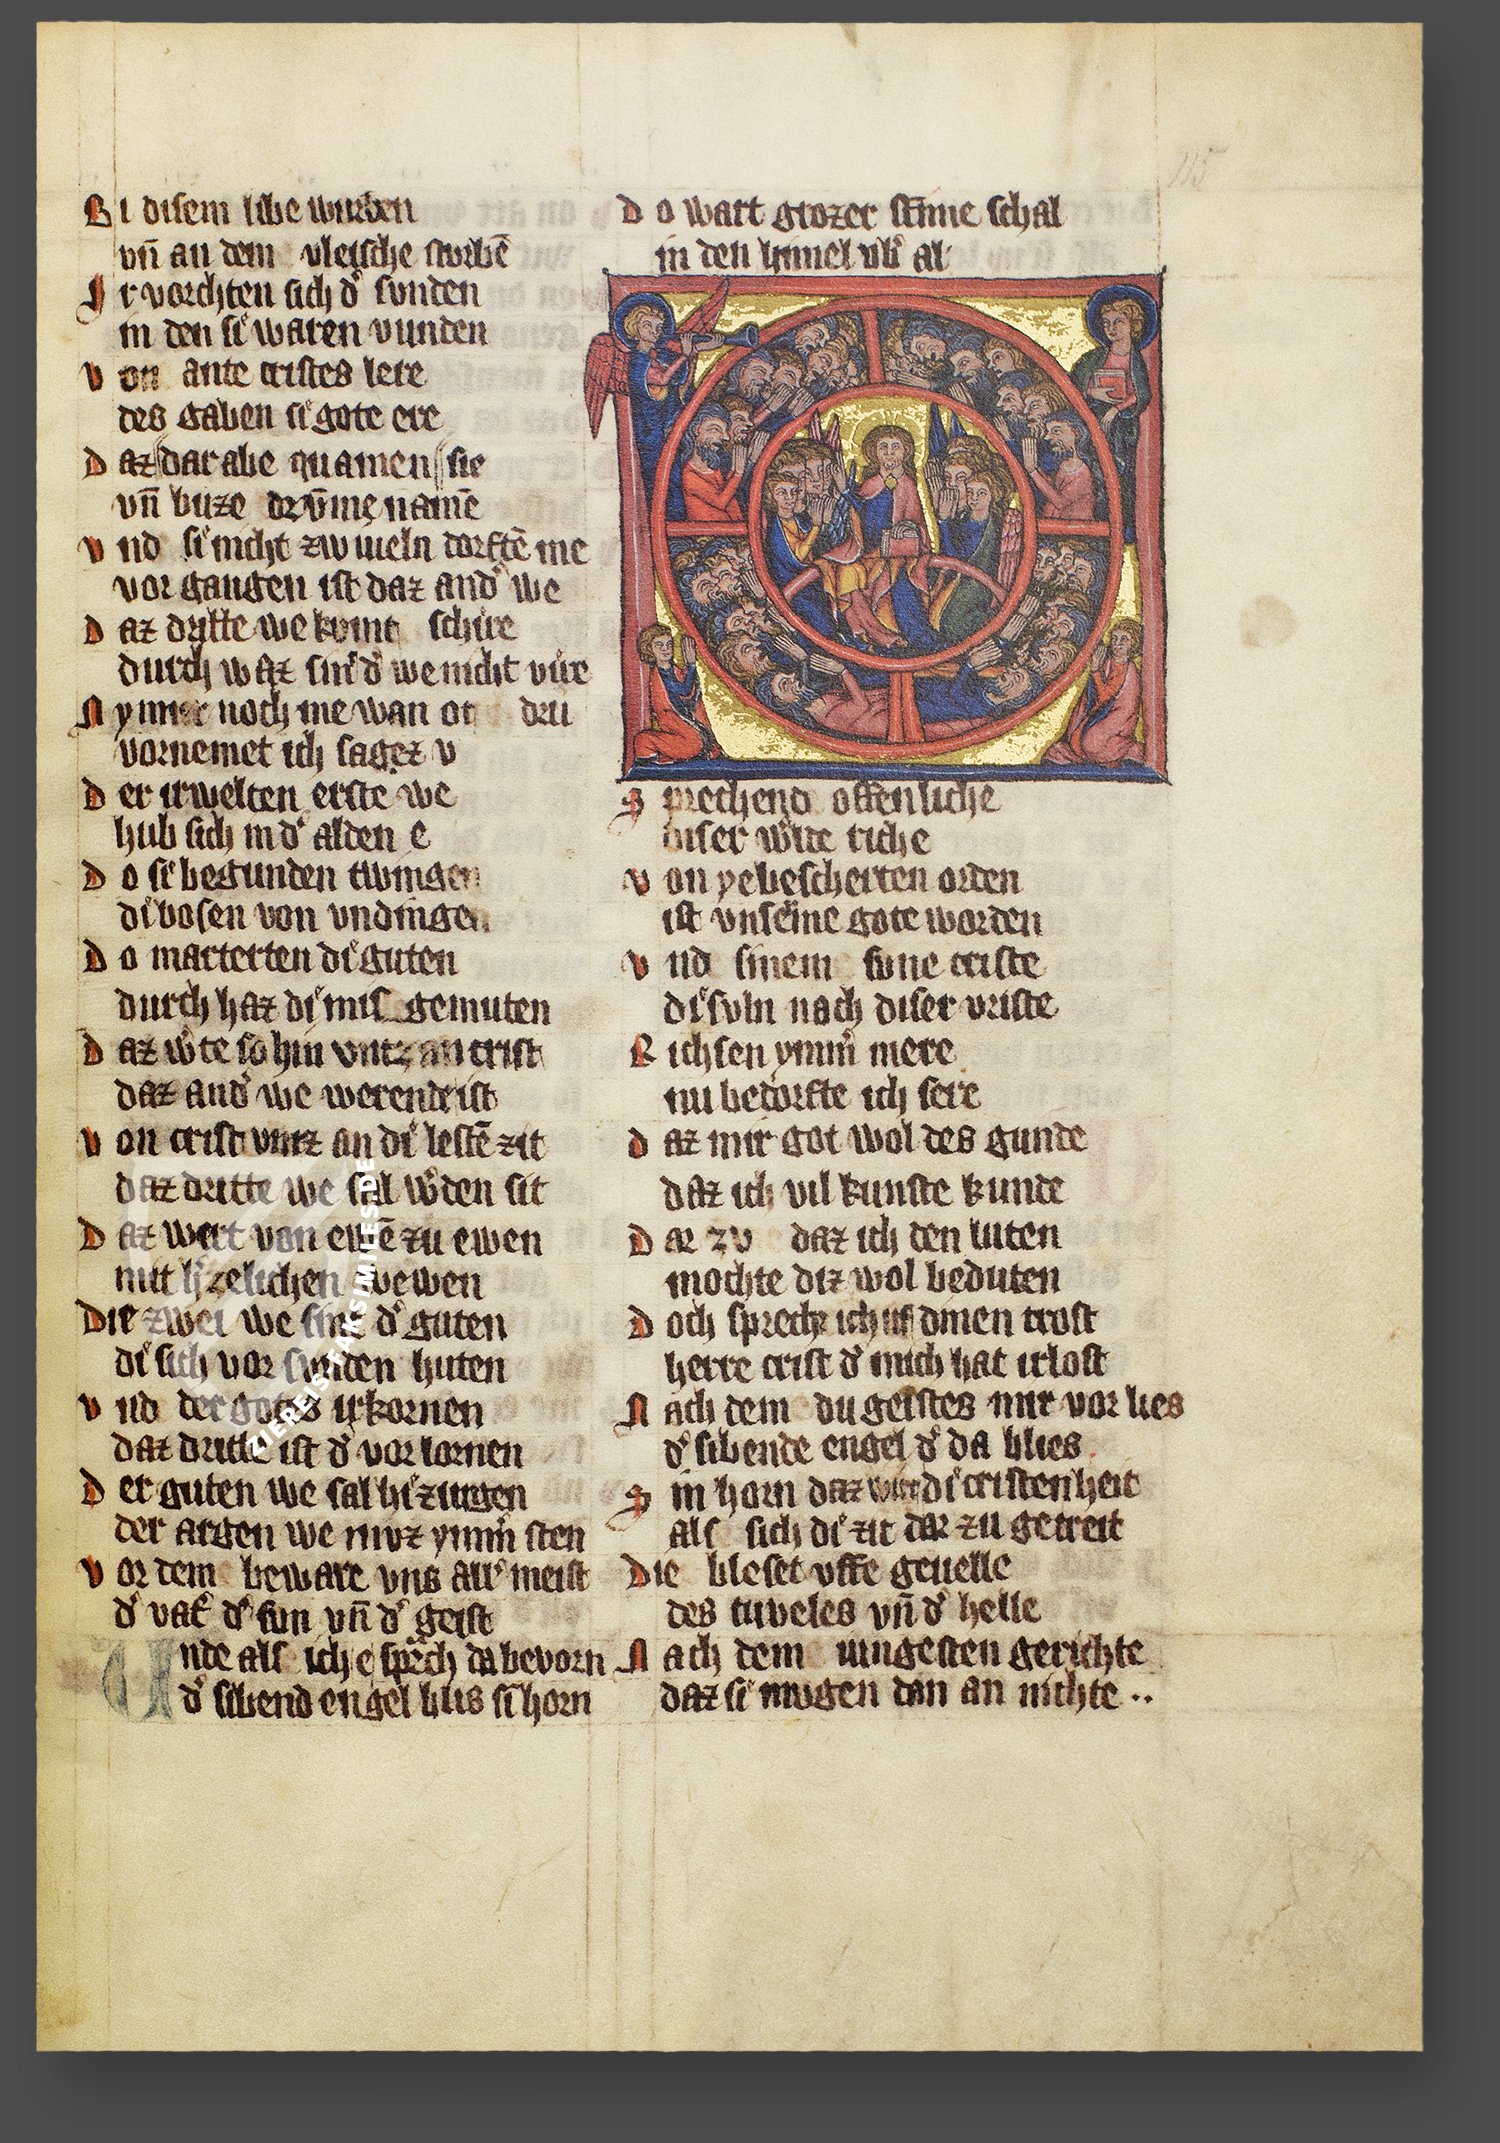 Bi disem libe wurben
vn̄ an dem vleische sturbē
Ir vorchten sich dʼ sunden
in den si waren vunden
von ante cristes lere
des gaben si gote ere
Daz dar abe quamen sie
vn̄ buze
vnd si nicht zwiueln dorftē me
vor gangen ist daz andʼ we
Daz dritte we kvmt schire
durch waz sint dʼ we nicht vire
Nymmer noch me wan ot dri
vornemet ich sagez v
Der irwelten erste we
hub sich in dʼ alden e
Do si begunden twingen
di bosen von vndingen
Do marterten di guten
durch haz di mis gemuten
Daz wʼte so hin vntz an crist
daz andʼ we werende ist
Von crist vntz an di lestē zit
daz dritte we sal wʼden sit
Daz wert von ewē zu ewen
mit hʼzelichen wewen
Die zwei we sint dʼ guten
di sich vor sunden huten
vnd der gotes irkornen
daz dritte ist dʼ vorlornen
Der guten we sal hi zurgen
der argen we mvz ymmʼ sten
vor dem beware vns allʼ meist
dʼ vatʼ dʼ sun vn̄ dʼ geist
Unde als ich e sprech da bevorn
dʼ sibend engel blis si horn
Do wart grozer stīme schal
in den himel vbʼ al
Sprechend offenliche
diser wʼlde riche
von yebescherten orden
ist vnseme gote worden
vnd sinem sune criste
di svln nach diser vriste
Richsen ymmʼ mere
nu bedorfte ich sere
daz mir got wol des gunde
daz ich vil kunste kunde
Dar zv daz ich den luten
mochte diz wol beduten
Doch spreche ich uf dinen trost
herre crist dʼ mich hat irlost
Nach dem du geistes mir vor lies
dʼ sibende engel dʼ da blies
Sin horn daz wirt di cristenheit
als sich di zit dar zu getreit
Die bleset vffe geuelle
des tuveles vn̄ dʼ helle
Nach dem iungesten gerichte
daz si mugen dan an nichte ..
115
ZIEREIS FAKSIMILES.DE